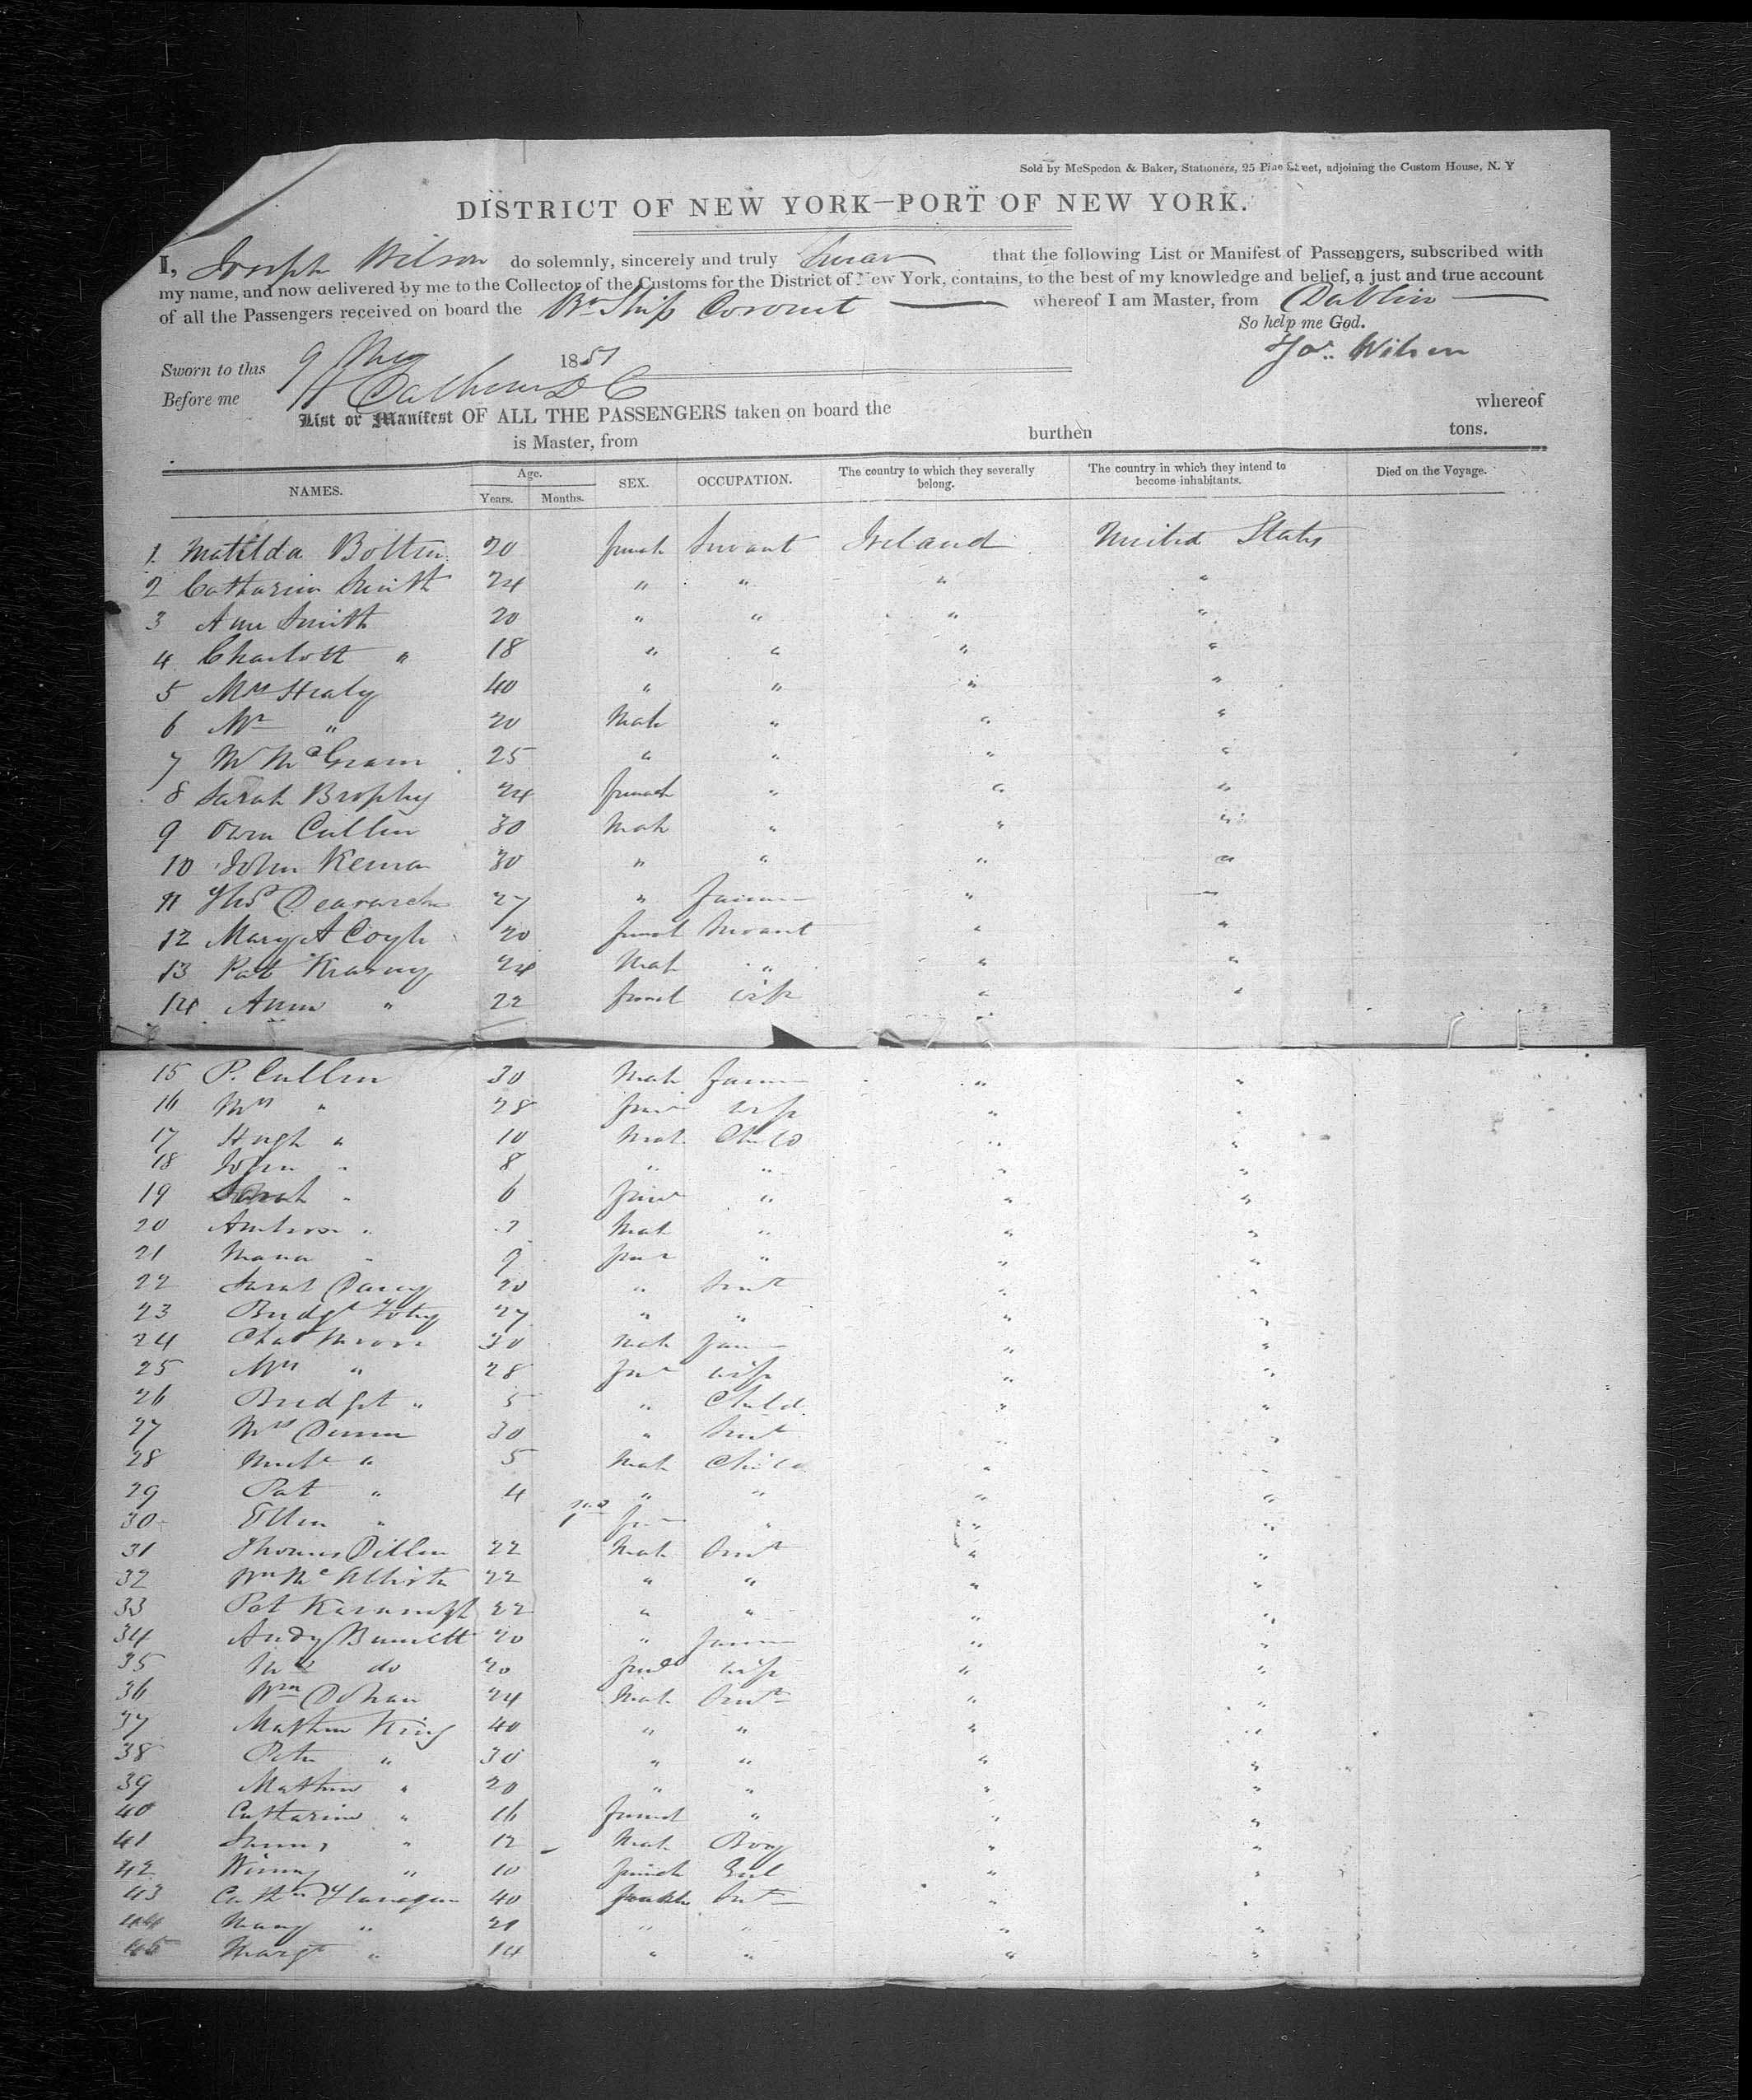 Sold by McSpedon & Baker, Stationers, 25 Pine Street, adjoining the Custom House, N. Y
DISTRICT OF NEW YORK—PORT OF NEW YORK.
I, Joseph Wilson do solemnly, sincerely and truly Swear that the following List or Manifest of Passengers, subscribed with
my name, and now delivered by me to the Collector of the Customs for the District of New York, contains, to the best of my knowledge and belief, a just and true account
of all the Passengers received on board the Br Ship Coronet whereof I am Master, from Dublin
So help me God.
Jos. Wilson
Sworn to this 9 May 1851
Before me
List or Manifest OF ALL THE PASSENGERS taken on board the whereof
is Master, from burthen tons.
NAMES. Age. Years. Months. SEX. OCCUPATION. The country to which they severally belong. The country in which they intend to become inhabitants. Died on the Voyage.
1 Matilda Bolten 20 female Servant Ireland United States
2 Catharine Smith 24 " " " "
3 Ann Smith 20 " " " "
4 Charlott " 18 " " " "
5 Mrs Healy 40 " " " "
6 Mr " 20 Male " " "
7 25 " " " "
8 Sarah Brophy 24 female " " "
9 Owen Cullen 30 Male " " "
10 John 30 " " " "
11 Thos 27 " Farmer " "
12 Mary A Coyle 20 female Servant " "
13 Pat Kearney 24 Male " " "
14 Ann " 22 female wife " "
15 P. Cullen 30 Male Farmer " "
16 Mrs " 28 fem wife " "
17 Hugh " 10 Male Child " "
18 John " 8 " " " "
19 Sarah " 6 fem " " "
20 Ambrose " Male " " "
21 Maria " 9 fem " " "
22 Sarah Darcy 20 " Sert " "
23 Bridgt Foley 27 " " " "
24 Chas Moore 30 Male Farm " "
25 Mrs " 28 fem wife " "
26 Bridget " 5 " Child " "
27 Mrs Dunn 30 " Sert " "
28 Michl " 5 Male Child " "
29 Pat " 4 " " " "
30 Ellen " fem " " "
31 Thomas Dillon 22 Male Sert " "
32 Wm McAllister 22 " " " "
33 Pat Kavanagh 22 " " " "
34 Andy Burnett 20 " Farmer " "
35 Mrs do 20 fem wife " "
36 Wm Dohan 24 Male Sert " "
37 Mathew King 40 " " " "
38 Peter " 30 " " " "
39 Mathew " 20 " " " "
40 Catharine " 16 female " " "
41 James " 12 Male Boy " "
42 Winny " 10 female Girl " "
43 Cathn Flanagan 40 female Sert " "
44 Mary " 21 " " " "
45 Margt " 14 " " " "